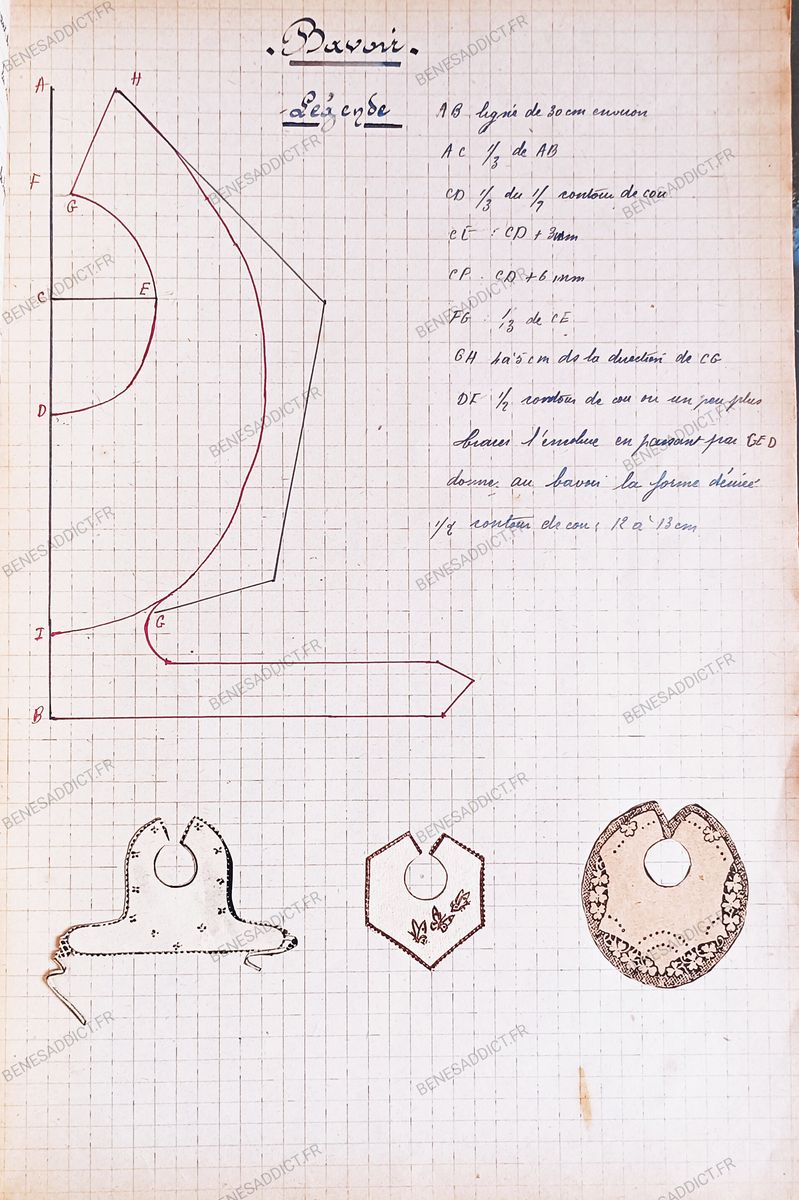 . Bavoir .
Légende
AB ligne de 30 cm environ
AC 1/3 de AB
CD 1/3 du 1/2 contour de cou
CE : CD + 3mm
CF : CD + 6 mm
FG : 1/3 de CE
GH 4 à 5 cm ds la direction de CG
DE 1/2 contour de cou ou un peu plus
tracer l'encolure en passant par GED
donner au bavoir la forme désirée
1/2 contour de cou : 12 à 13 cm
A
H
F
G
C
E
D
I
G
B
BENESADDICT.FR